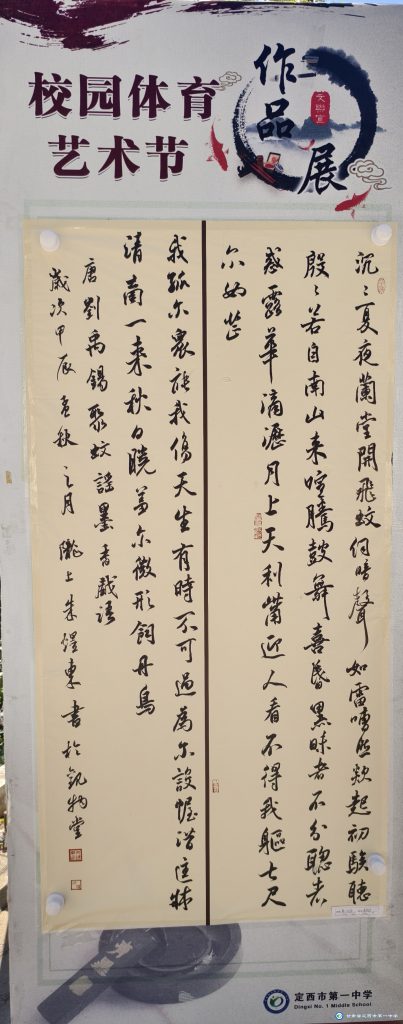 校园体育
艺术节
作品展
沉〻夏夜蘭堂開飛蚊伺暗聲如雷嘈然欻起初駭聽
殷〻若自南山来喧騰鼓舞喜昏黑昧者不分聰者
惑露華滴瀝月上天利觜迎人看不得我軀七尺
尔如芒
我孤尔衆能我傷天生有時不可遏為尔設幄潜匡牀
清商一来秋日曉羞尔微形飼丹鳥
唐劉禹錫聚蚊謡墨香戲語
歲次甲辰孟秋之月隴上朱煜東書於觀物堂
定西市第一中学
Dingxi No. 1 Middle School